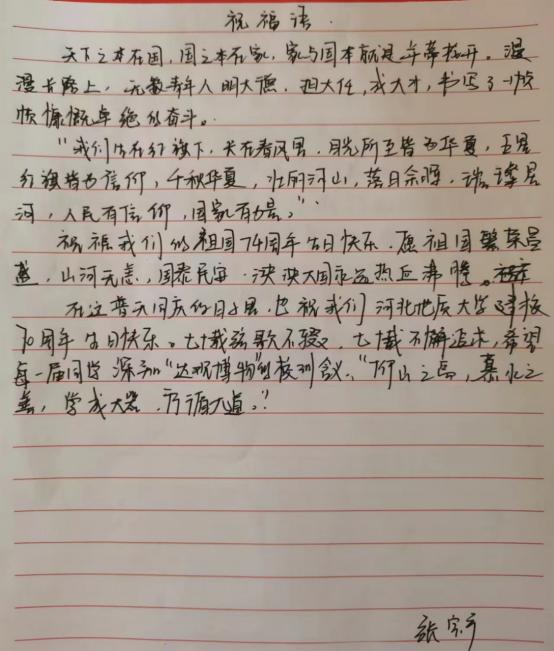 祝福语.
天下之本在国,国之本在家,家与国本就是年带相开。漫
漫长路上,无数青年人明大德,担大任,成大才,书写了一帧
帧慷慨卓绝的奋斗。
"我们生在红旗下,长在春风里,目光所至皆为华夏,五星
红旗皆为信仰,千秋华夏,壮丽河山,落日余晖,璀璨星
河,人民有信仰,国家有力量。"
祝福我们的祖国74周年生日快乐.愿祖国繁荣昌
盛,山河无恙,国泰民安.泱泱大国永远热血沸腾。
在这普天同庆的日子里,也祝我们河北地质大学建校
70周年生日快乐。七十载弦歌不辍,七十载不懈追求,希望
每一届同学深知"达观博物"的校训含义,"仰山之高,慕水之
善,学成大器.乃循大道。"
张宗